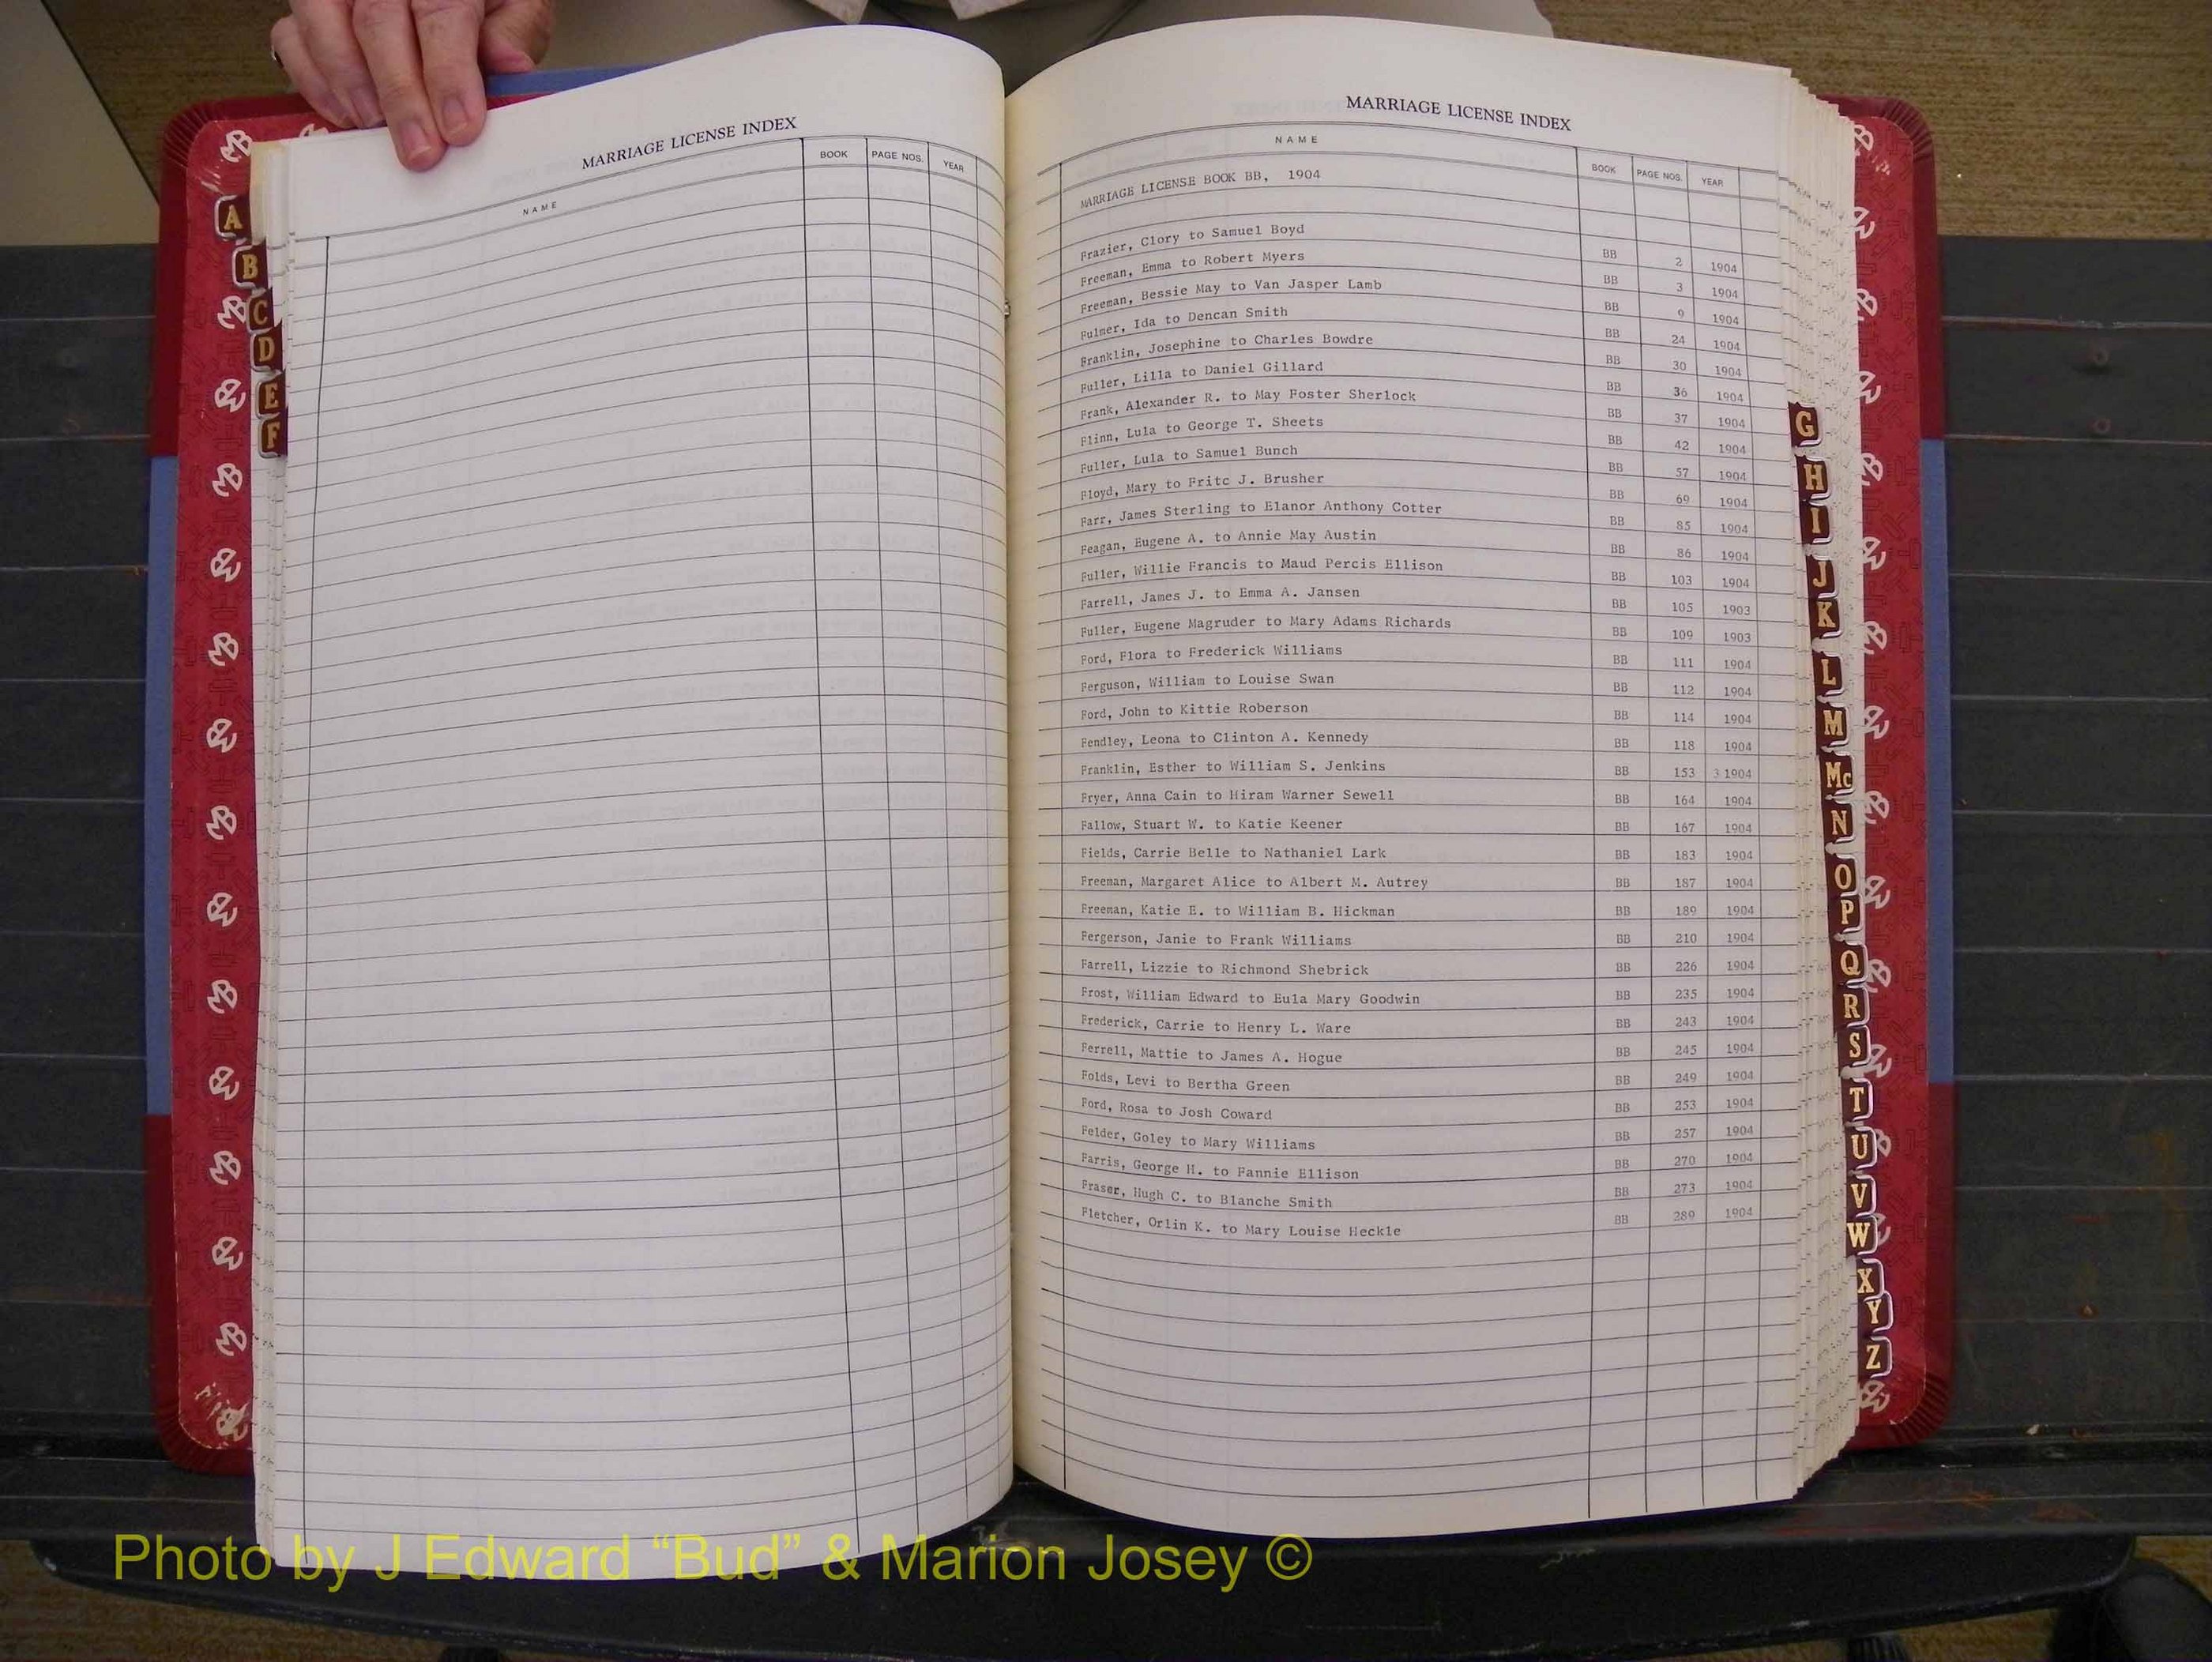 MARRIAGE LICENSE INDEX
NAME BOOK PAGE NOS. YEAR
MARRIAGE LICENSE INDEX
NAME BOOK PAGE NOS. YEAR
MARRIAGE LICENSE BOOK BB, 1904
Frazier, Clory to Samuel Boyd BB 2 1904
Freeman, Emma to Robert Myers BB 3 1904
Freeman, Bessie May to Van Jasper Lamb BB 9 1904
Fulmer, Ida to Dencan Smith BB 24 1904
Franklin, Josephine to Charles Bowdre BB 30 1904
Fuller, Lilla to Daniel Gillard BB 36 1904
Frank, Alexander R. to May Foster Sherlock BB 37 1904
Flinn, Lula to George T. Sheets BB 42 1904
Fuller, Lula to Samuel Bunch BB 57 1904
Floyd, Mary to Fritc J. Brusher BB 69 1904
Farr, James Sterling to Elanor Anthony Cotter BB 85 1904
Feagan, Eugene A. to Annie May Austin BB 86 1904
Fuller, Willie Francis to Maud Percis Ellison BB 103 1904
Farrell, James J. to Emma A. Jansen BB 105 1903
Fuller, Eugene Magruder to Mary Adams Richards BB 109 1903
Ford, Flora to Frederick Williams BB 111 1904
Ferguson, William to Louise Swan BB 112 1904
Ford, John to Kittie Roberson BB 114 1904
Fendley, Leona to Clinton A. Kennedy BB 118 1904
Franklin, Esther to William S. Jenkins BB 153 3 1904
Fryer, Anna Cain to Hiram Warner Sewell BB 164 1904
Fallow, Stuart W. to Katie Keener BB 167 1904
Fields, Carrie Belle to Nathaniel Lark BB 183 1904
Freeman, Margaret Alice to Albert M. Autrey BB 187 1904
Freeman, Katie E. to William B. Hickman BB 189 1904
Fergerson, Janie to Frank Williams BB 210 1904
Farrell, Lizzie to Richmond Shebrick BB 226 1904
Frost, William Edward to Eula Mary Goodwin BB 235 1904
Frederick, Carrie to Henry L. Ware BB 243 1904
Ferrell, Mattie to James A. Hogue BB 245 1904
Folds, Levi to Bertha Green BB 249 1904
Ford, Rosa to Josh Coward BB 253 1904
Felder, Goley to Mary Williams BB 257 1904
Farris, George H. to Fannie Ellison BB 270 1904
Fraser, Hugh C. to Blanche Smith BB 273 1904
Fletcher, Orlin K. to Mary Louise Heckle BB 289 1904
A
B
C
D
E
F
G
H
I
J
K
L
M
Mc
N
O
P
Q
R
S
T
U
V
W
X
Y
Z
Photo by J Edward “Bud” & Marion Josey ©